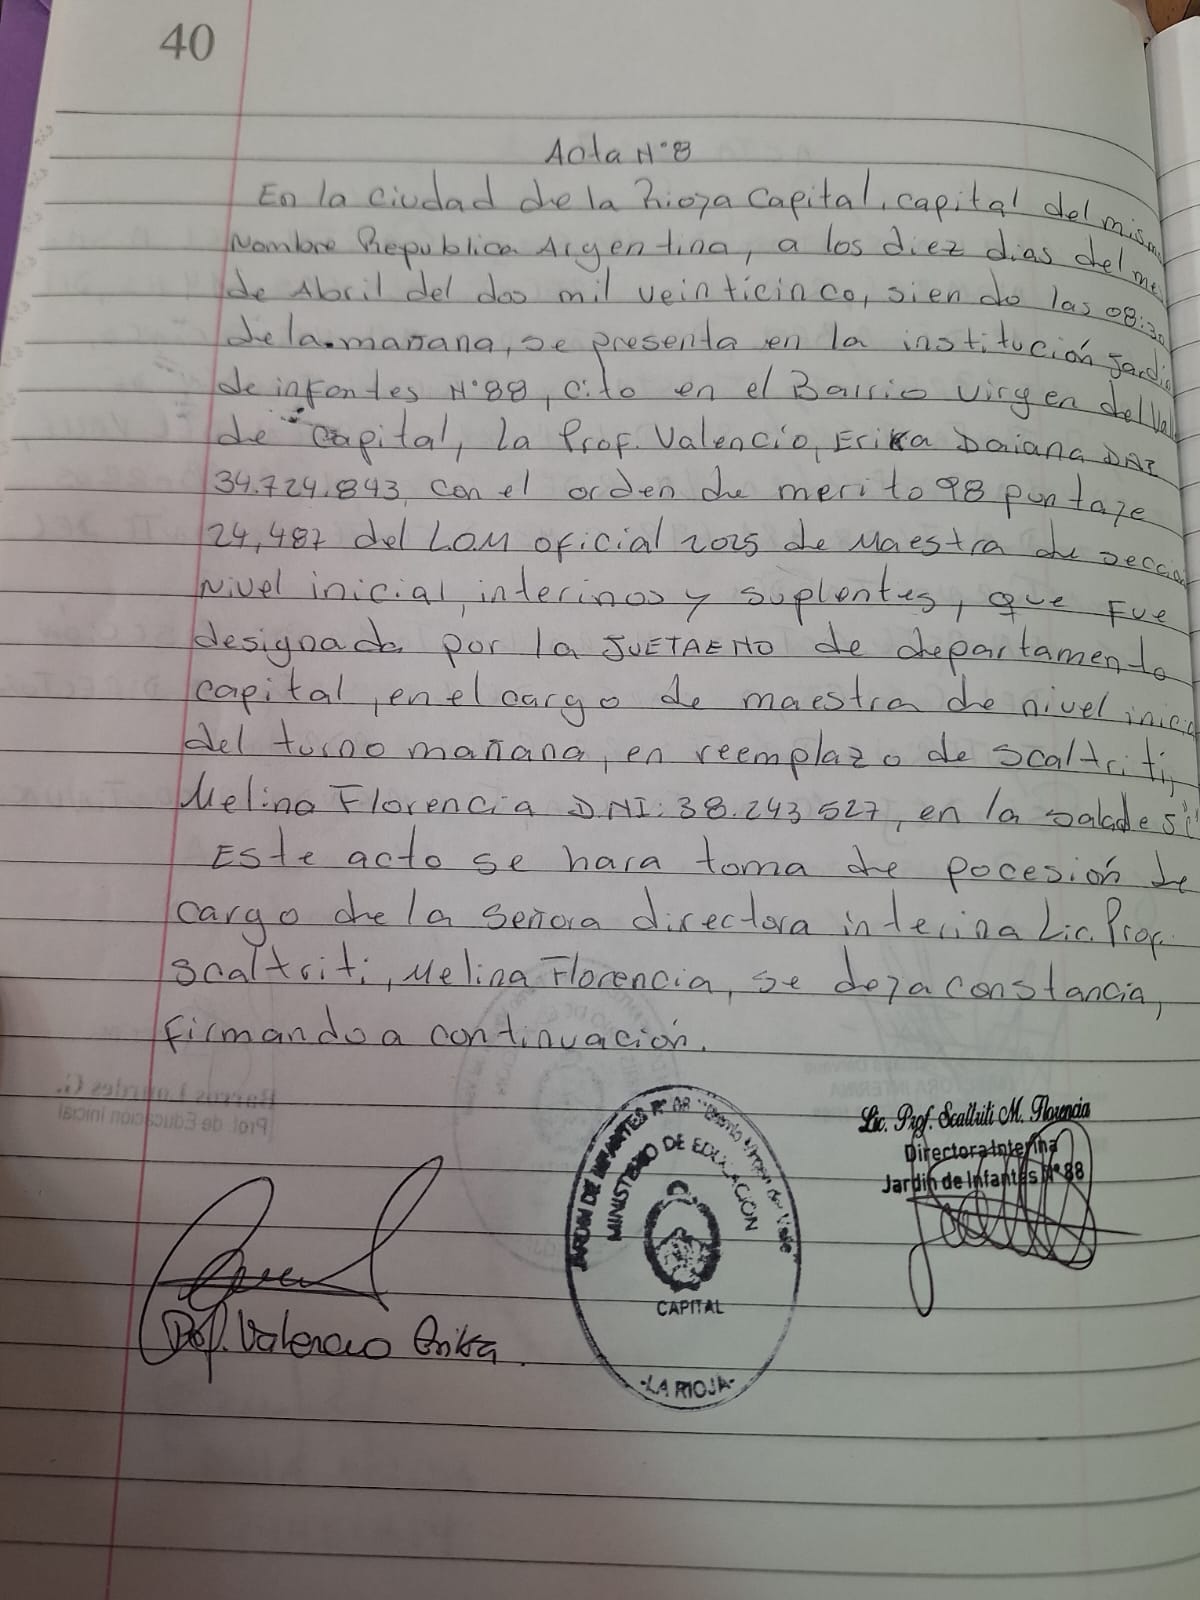 40
Acta N°8
En la Ciudad de la Rioja Capital, capital del mismo
Nombre Republica Argentina, a los diez dias del mes
de Abril del dos mil veinticinco, siendo las 08:30
de la mañana, se presenta en la institución Jardin
de infantes N°88, cito en el Barrio Virgen del Valle
de Capital, la Prof. Valencio, Erika Daiana DNI
34.724.843, con el orden de merito 98 puntaje
24,487 del LOM oficial 2025 de Maestra de sección
Nivel inicial, interinos y suplentes, que fue
designada por la JUETAENO de departamento
capital, en el cargo de maestra de nivel inicial
del turno mañana, en reemplazo de Scaltriti,
Melina Florencia DNI: 38.243.527, en la sala de 5
Este acto se hara toma de pocesión de
cargo de la Señora directora interina Lic. Prof.
Scaltriti, Melina Florencia, se deja constancia,
firmando a continuación.
Lic. Prof. Scaltriti M. Florencia
Directora Interina
Jardin de Infantes N° 88
JARDIN DE INFANTES N° 88 "Barrio Virgen del Valle"
MINISTERIO DE EDUCACIÓN
CAPITAL
-LA RIOJA-
Prof. Valencio Erika.
Barros Lourdes G.
Prof. de Educación Inicial